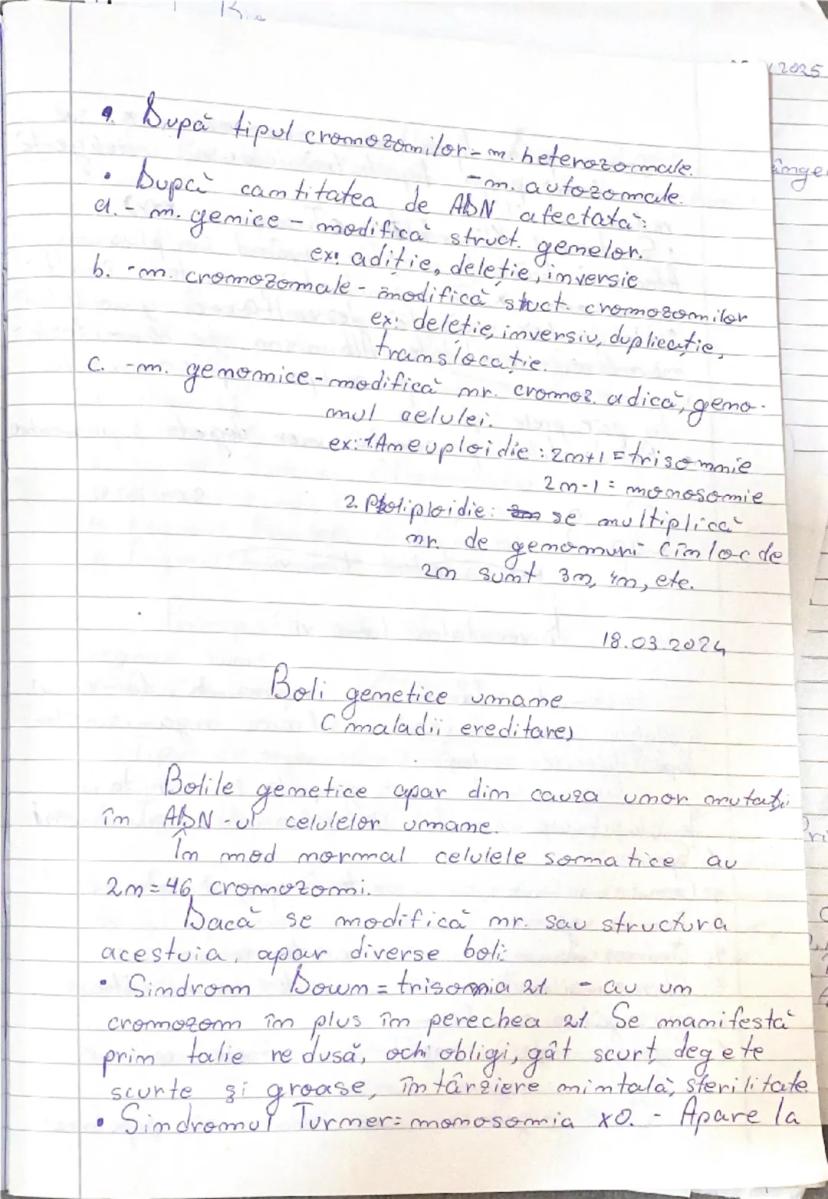 • După tipul cromozomilor - m. heterozomale.
- m. autozomale.
• După cantitatea de ADN afectată:
a. - m. genice - modifică struct. genelor.
ex: adiție, deleție, inversie
b. - m. cromozomale - modifică stuct. cromozomilor
ex: deleție, inversiv, duplicație,
translocație.
c. - m. genomice - modifică nr. cromoz. adică, geno-
mul celulei.
ex: 1. Aneuploidie: 2n+1 = trisomnie
2n-1 = monosomie
2. Poliploidie: se multiplică
nr. de genomuri (în loc de
2n sunt 3n, 4n, etc.
18.03.2024
Boli genetice umane
(maladii ereditare)
Bolile genetice apar din cauza unor mutații
în ADN-ul celulelor umane.
În mod normal celulele somatice au
2n=46 cromozomi.
Dacă se modifică nr. sau structura
acestuia, apar diverse boli:
• Sindrom Down = trisomia 21. - au un
cromozom în plus în perechea 21. Se manifestă
prin talie redusă, ochi obligi, gât scurt, degete
scurte și groase, întârziere mintală, sterilitate
• Sindromul Turner = monosomia x0. - Apare la
2025